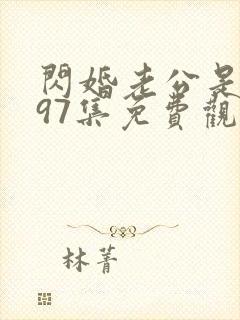 閃婚老公是
97集免費觀
林菁